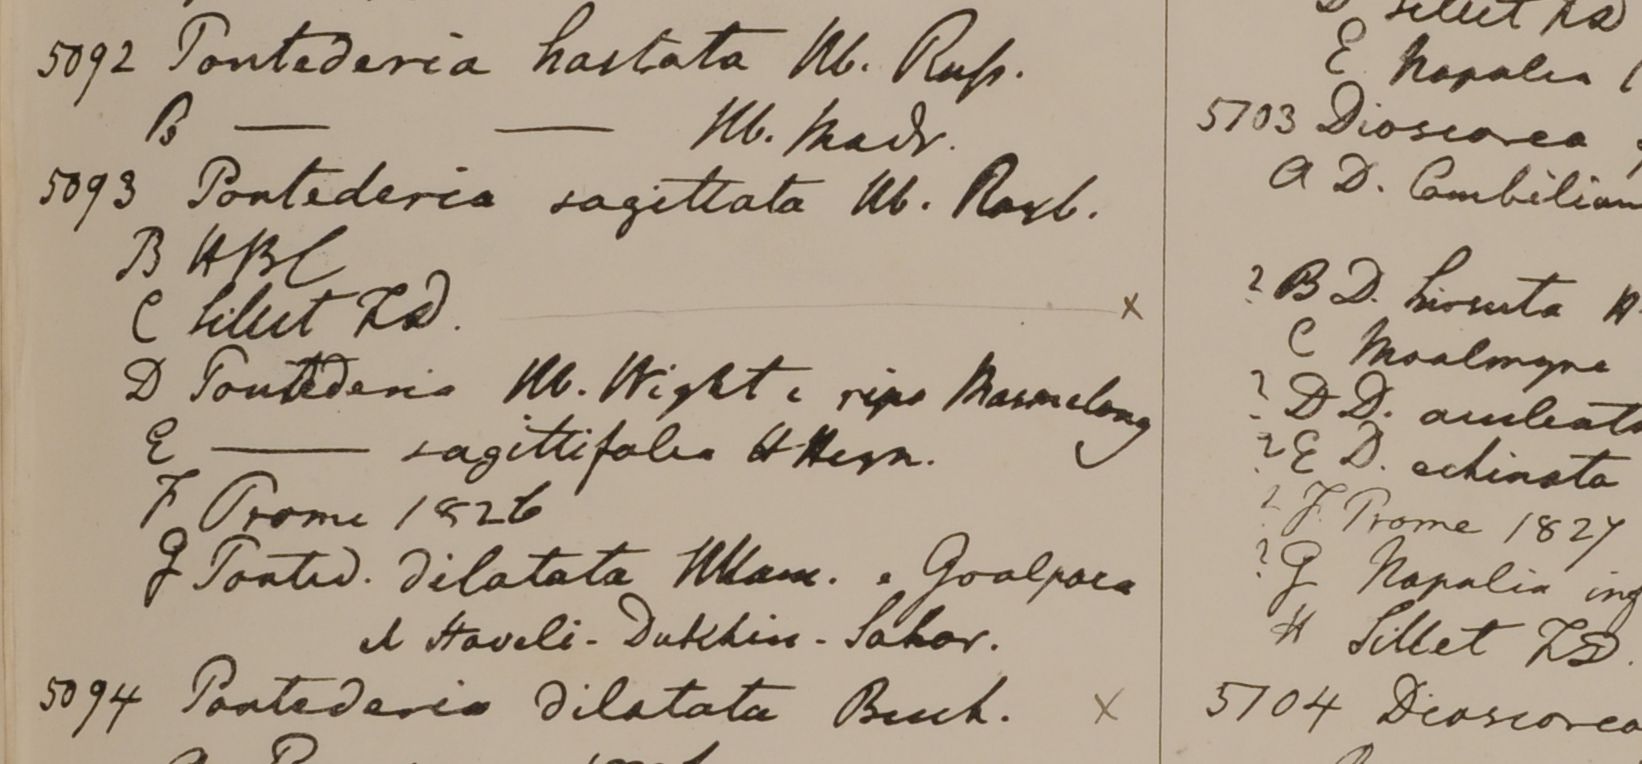 5092 Pontederia hastata Hb. Russ.
B — — Hb. Madr.
5093 Pontederia sagittata Hb. Roxb.
B HBC
C Sillet FD.
D Pontederia Hb. Wight e ripa
E — sagittifolia H Heyn.
F Prome 1826
G Ponted. dilatata HHam. e Goalpara
et Haveli - Dukhin - Sahor.
5094 Pontederia dilatata Buch. x
Sillet FD
E Napalia
5103 Dioscorea
A D.
? B D. hirsuta H.
C Moalmyne
? D D. aculeata
? E D. echinata
? F. Prome 1827
? G Napalia
H Sillet FD.
5104 Dioscorea